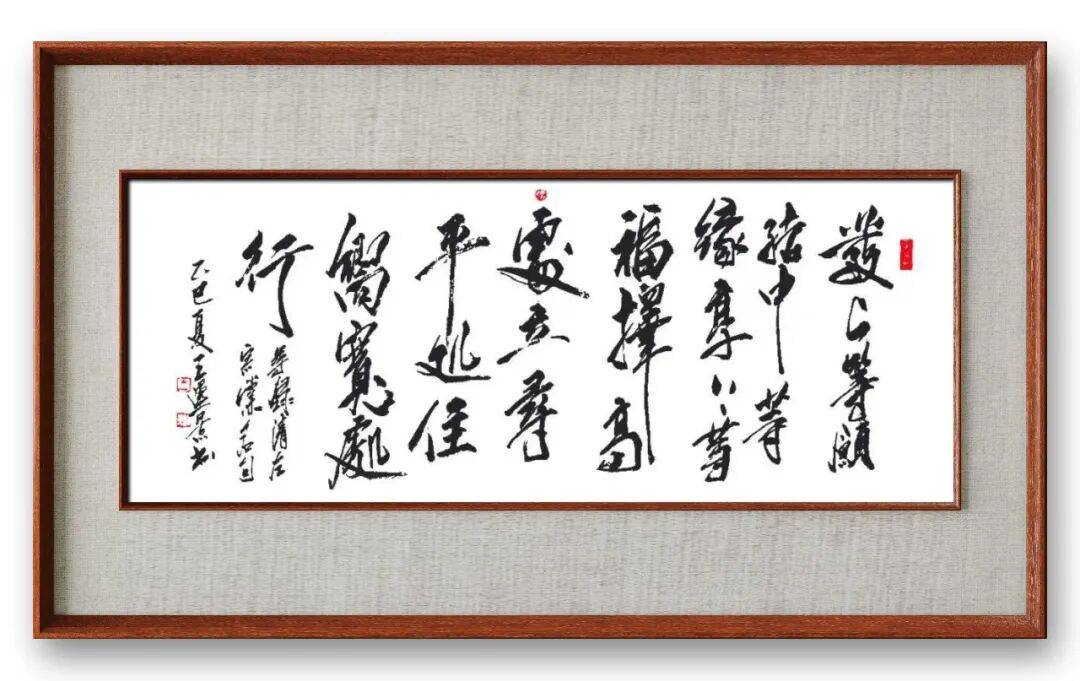 發上等願
結中等
緣享下等
福擇高
處立尋
平処住
嚮寬處
行
録清左
宗棠名句
乙巳夏王